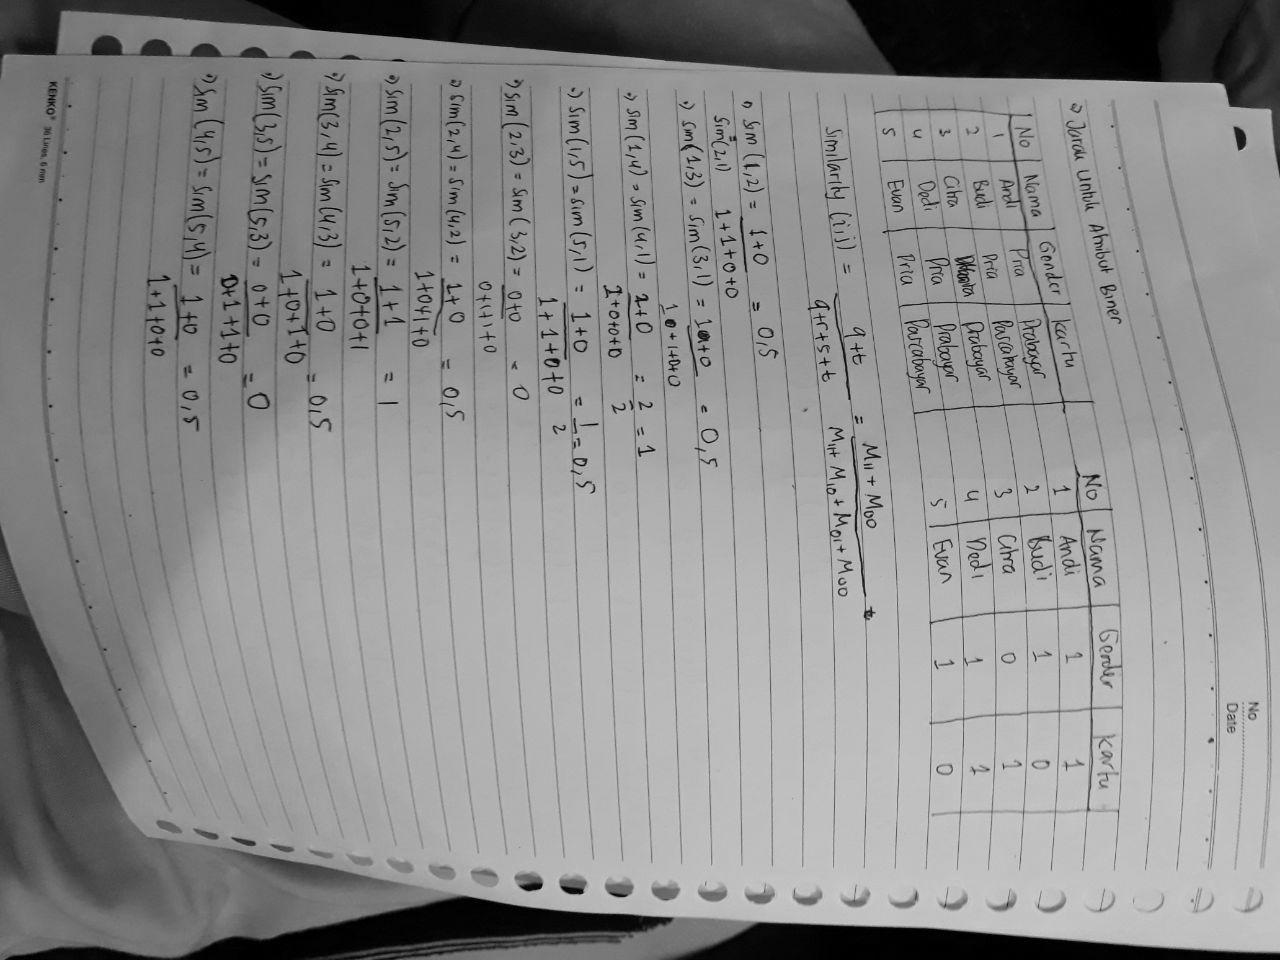 No
Date
=) Jarak untuk Atribut Biner
No Nama Gender Kartu
1 Andi Pria Prabayar
2 Budi Pria Pascabayar
3 Citra Prabayar
4 Dedi Pria Prabayar
5 Evan Pria Pascabayar
No Nama Gender Kartu
1 Andi 1 1
2 Budi 1 0
3 Citra 0 1
4 Dedi 1 1
5 Evan 1 0
Similarity (i,j) = q+t / q+r+s+t = M11 + M00 / M11 + M10 + M01 + M00
=) Sim (1,2) = 1+0 / 1+1+0+0 = 0,5
=
Sim(2,1)
=) Sim(1,3) = Sim(3,1) = 1+0 / 1+0+1+0 = 0,5
=) Sim (1,4) = Sim(4,1) = 2+0 / 2+0+0+0 = 2/2 = 1
=) Sim(1,5) = Sim(5,1) = 1+0 / 1+1+0+0 = 1/2 = 0,5
=) Sim (2,3) = Sim (3,2) = 0+0 / 0+1+1+0 = 0
=) Sim(2,4) = Sim(4,2) = 1+0 / 1+0+1+0 = 0,5
=) Sim(2,5) = Sim(5,2) = 1+1 / 1+0+0+1 = 1
=) Sim(3,4) = Sim(4,3) = 1+0 / 1+0+1+0 = 0,5
=) Sim(3,5) = Sim(5,3) = 0+0 / 0+1+1+0 = 0
=) Sim(4,5) = Sim(5,4) = 1+0 / 1+1+0+0 = 0,5
KENKO® 36 Lines, 6 mm